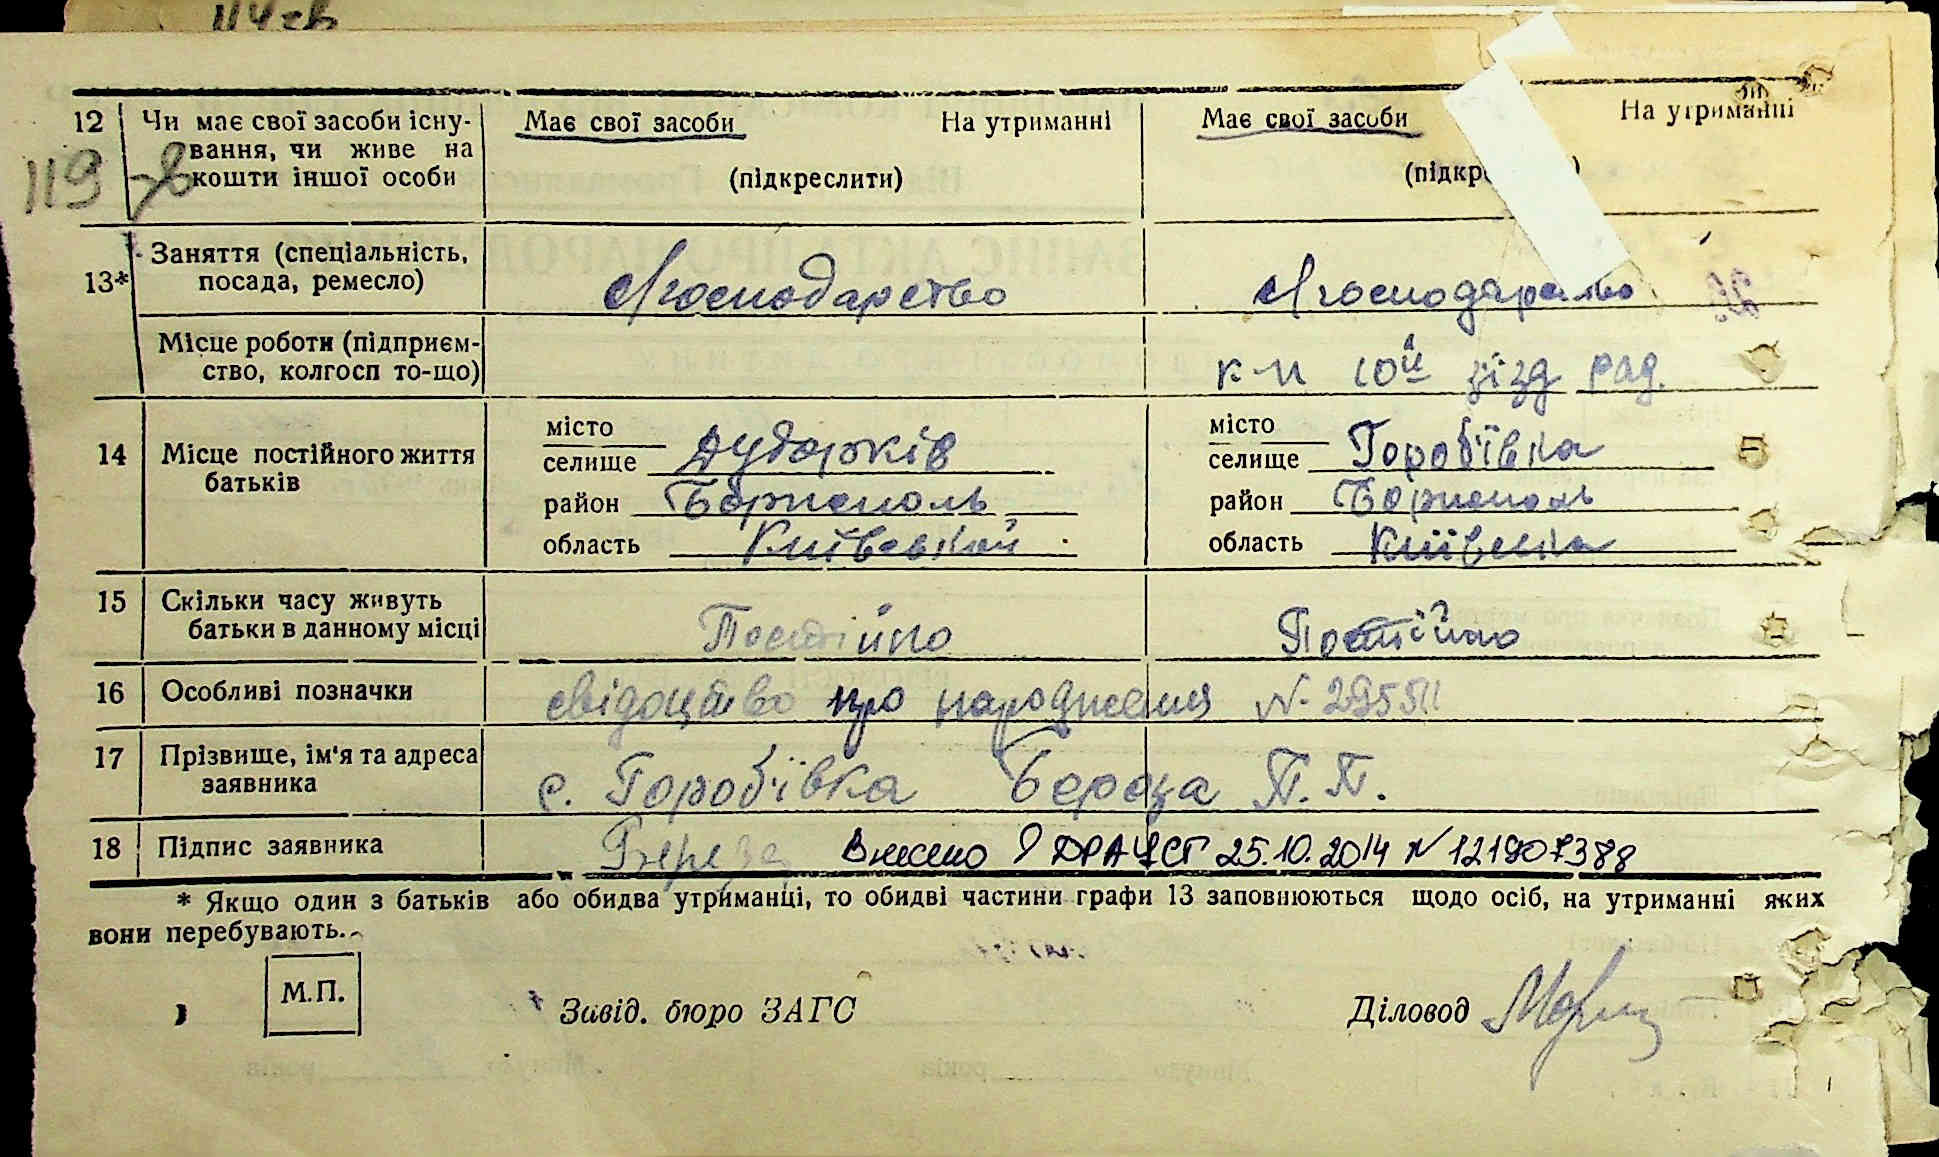 114 зв
12 Чи має свої засоби існу- Має свої засоби На утриманні Має свої засоби На утриманні
вання, чи живе на
119 зв кошти іншої особи (підкреслити) (підкр )
13* Заняття (спеціальність,
посада, ремесло) С/господарство С/господарство
Місце роботи (підприєм-
ство, колгосп то-що) к-п 10й зізд рад.
місто місто
14 Місце постійного життя селище Дударків селище Горобіївка
батьків район Бориспіль район Бориспіль
область Київській область Київська
15 Скільки часу живуть
батьки в данному місці Постійно Постійно
16 Особливі позначки свідоцтво про народження N. 295511
17 Прізвище, ім'я та адреса
заявника с. Горобіївка Береза П. П.
18 Підпис заявника Береза Внесено у ДРАЦСГ 25.10.2014 N 121907388
* Якщо один з батьків або обидва утриманці, то обидві частини графи 13 заповнюються щодо осіб, на утриманні яких
вони перебувають.
М.П.
Завід. бюро ЗАГС Діловод